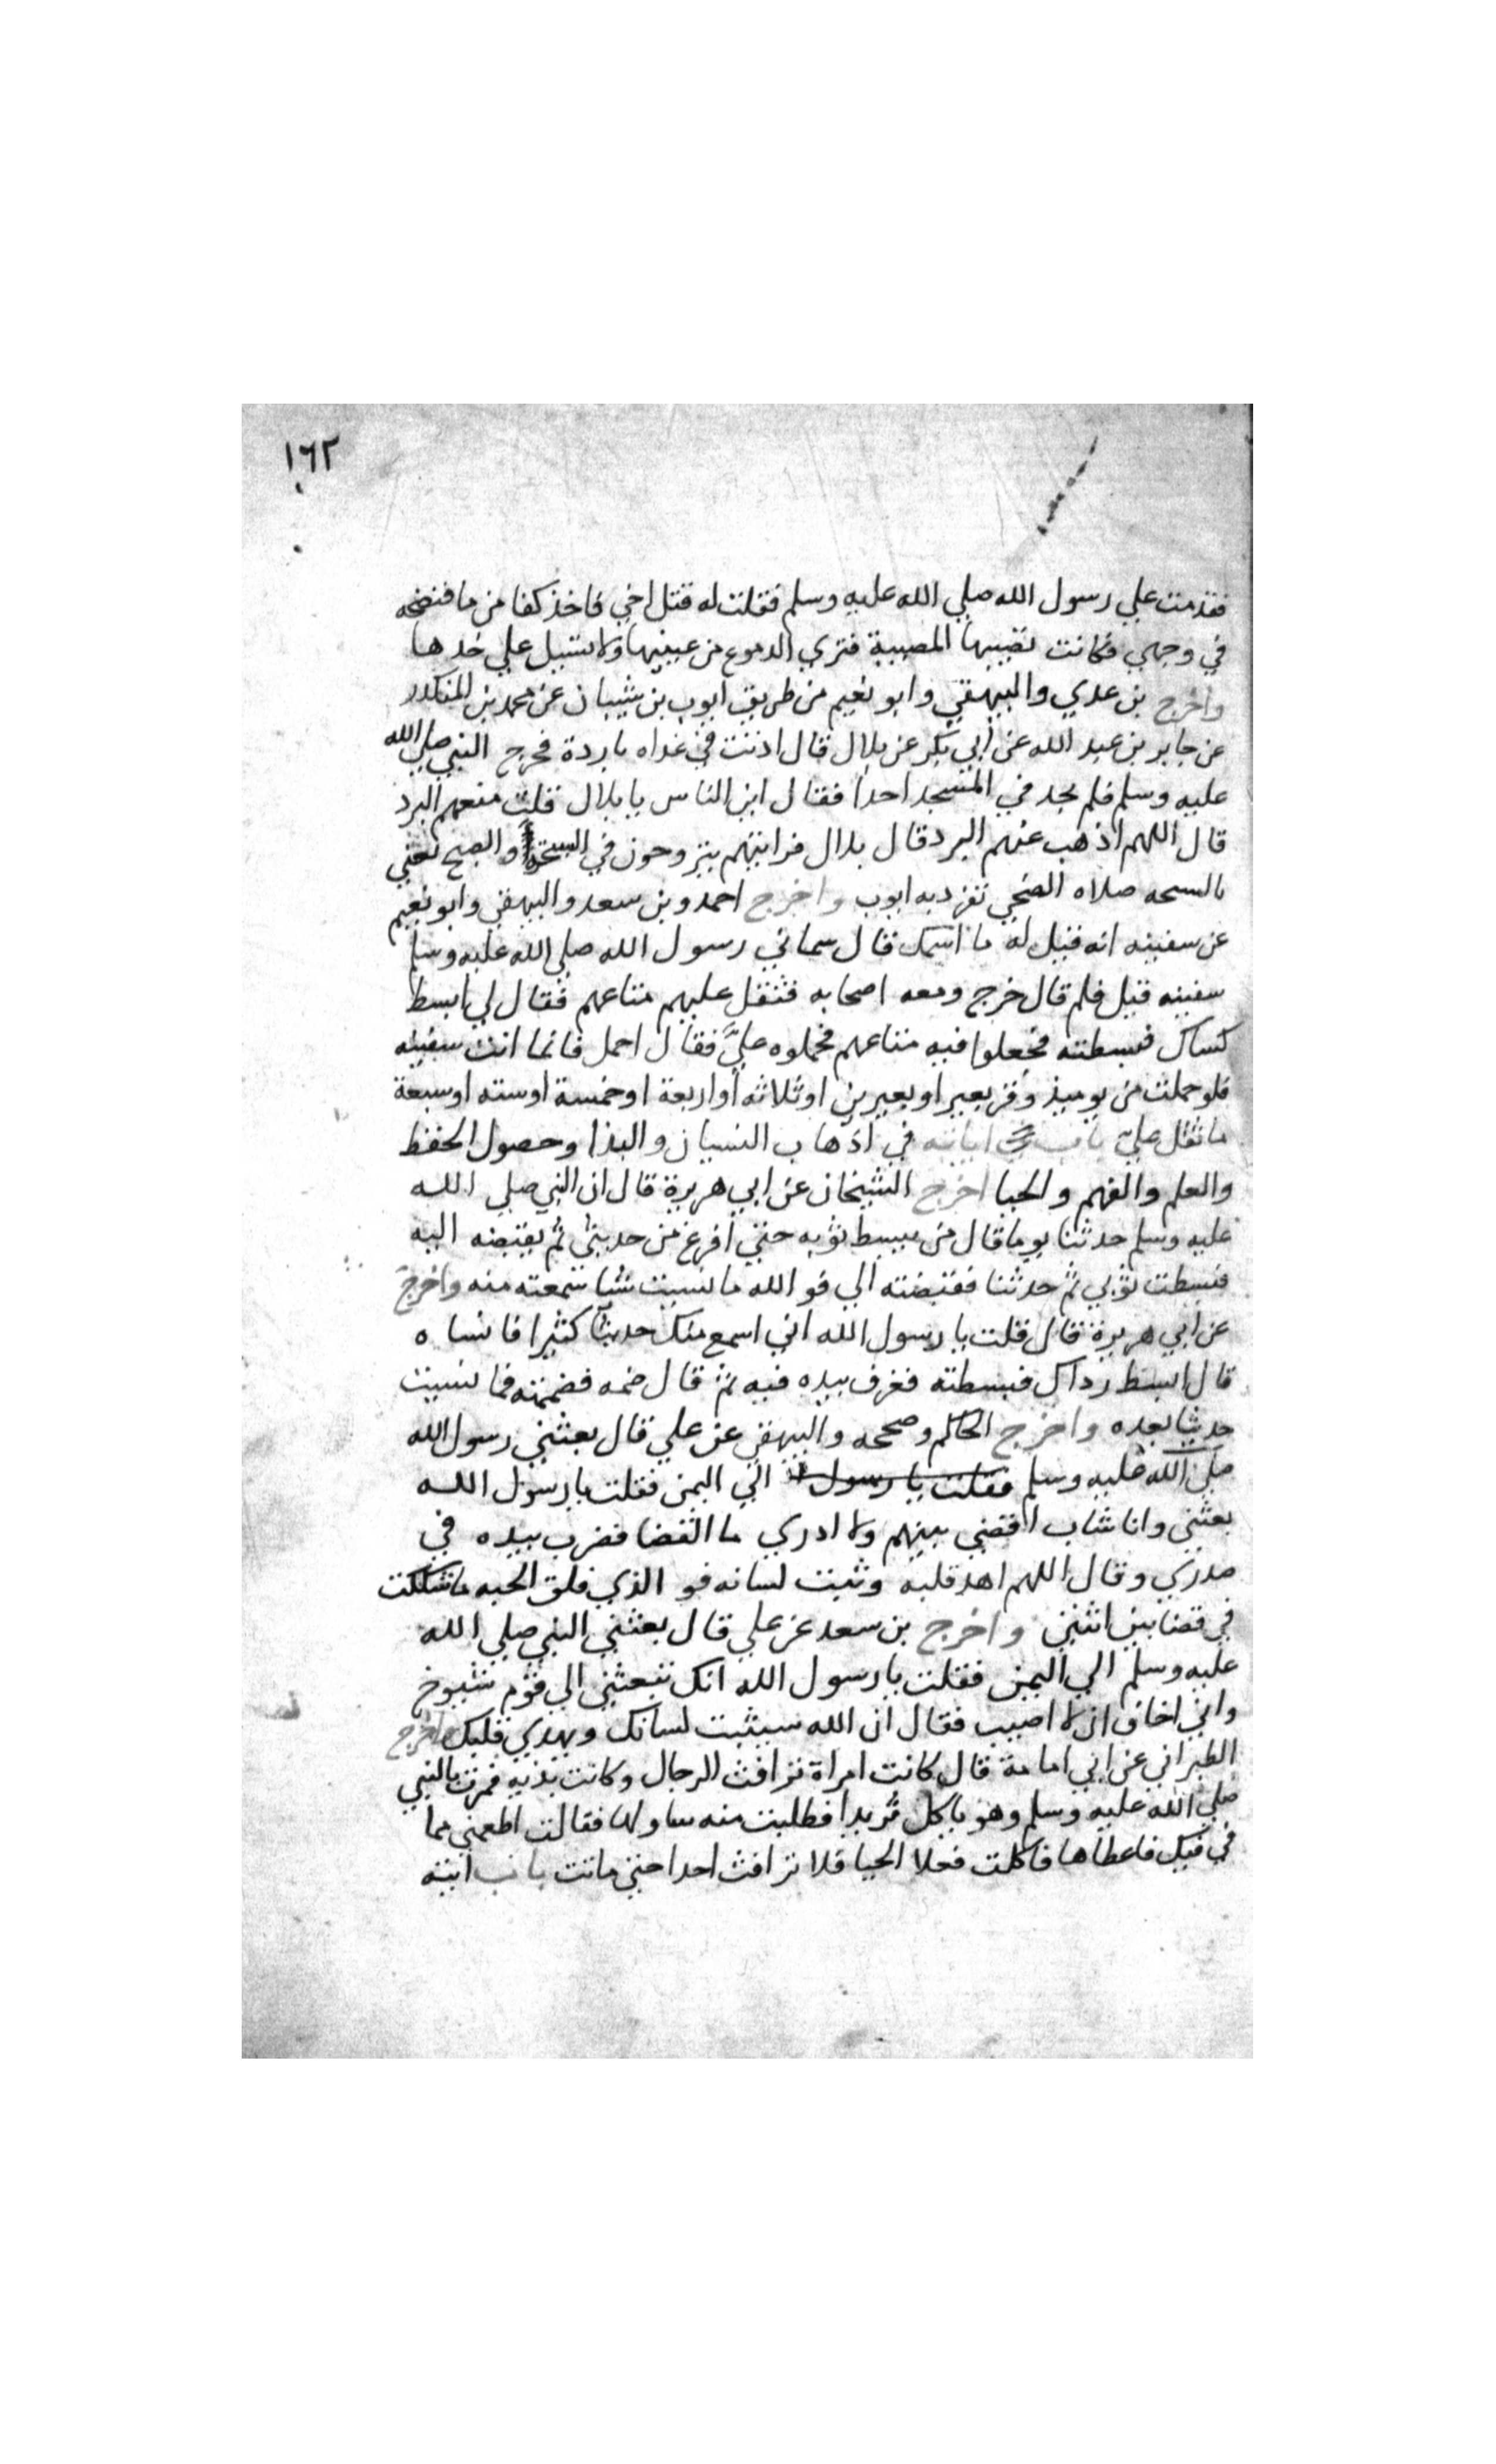 ١٦٢
فقدمت علي رسول الله صلي الله عليه وسلم فقلت له قتل اخي فاخذ كفا من ما فنضحه
في وجهي فكانت تصيبها المصيبة فتري الدموع من عينيها ولا تسيل علي خدها
واخرج بن عدي والبيهقي وابو نعيم من طريق ايوب بن شيبان عن محمد بن المنكدر
عن جابر بن عبد الله عن ابي بكر عن بلال قال اذنت في غداه باردة فخرج النبي صلي الله
عليه وسلم فلم يجد في المسجد احدا فقال اين الناس يا بلال قلت منعهم البرد
قال اللهم اذهب عنهم البرد قال بلال فرايتهم يتروحون في السبحة والصبح تعني
بالسبحه صلاه الضحي تفرد به ايوب واخرج احمد وبن سعد والبيهقي وابو نعيم
عن سفينه انه قيل له ما اسمك قال سماني رسول الله صلي الله عليه وسلم
سفينه قيل فلم قال خرج ومعه اصحابه فثقل عليهم متاعهم فقال لي ابسط
كساك فبسطته فجعلوا فيه متاعهم فحملوه عليَّ فقال احمل فانما انت سفينه
فلو حملت من يوميذ وقر بعير او بعيرين او ثلاثه او اربعة او خمسة او سته او سبعة
ما ثقل علي باب اياته في اذهاب النسيان والبذا وحصول الحفظ
والعلم والفهم والحيا اخرج الشيخان عن ابي هريرة قال ان النبي صلي الله
عليه وسلم حدثنا يوما قال من يبسط ثوبه حتي افرغ من حديثي ثم يقبضه اليه
فبسطت ثوبي ثم حدثنا فقبضته الي فو الله ما نسيت شيا سمعته منه واخرج
عن ابي هريرة قال قلت يا رسول الله اني اسمع منك حديثا كثيرا فانساه
قال ابسط رداك فبسطته فغرف بيده فيه ثم قال ضمه فضممته فما نسيت
حديثا بعده واخرج الحاكم وصححه والبيهقي عن علي قال بعثني رسول الله
صلي الله عليه وسلم فقلت يا رسول الي اليمن فقلت يا رسول الله
بعثني وانا شاب اقضي بينهم ولا ادري ما القضا فضرب بيده في
صدري وقال اللهم اهد قلبه وثبت لسانه فو الذي فلق الحبه ما شككت
في قضا بين اثنين واخرج بن سعد عن علي قال بعثني النبي صلي الله
عليه وسلم الي اليمن فقلت يا رسول الله انك تبعثني الي قوم شيوخ
واني اخاف ان لا اصيب فقال ان الله سيثبت لسانك ويهدي قلبك واخرج
الطبراني عن ابي امامة قال كانت امراة ترافث الرجال وكانت بذيه فمرت بالنبي
صلي الله عليه وسلم وهو ياكل ثريدا فطلبت منه فناولها فقالت اطعمني مما
في فيك فاعطاها فاكلت فعلا الحيا فلا ترافث احدا حتي ماتت باب ايته